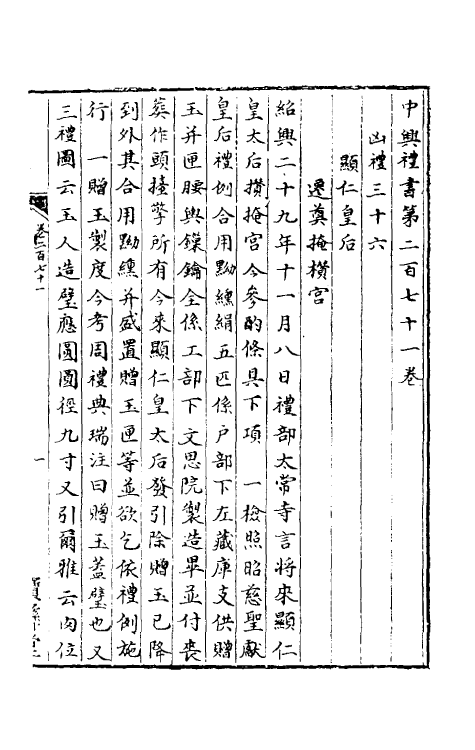 中興禮書第二百七十一卷
凶禮三十六
顯仁皇后
遷奠掩攢宮
紹興二十九年十一月八日禮部太常寺言將來顯仁
皇太后攢掩宮今參酌條具下項　一檢照昭慈聖獻
皇后禮例合用黝纁絹五匹係戶部下左藏庫支供贈
玉并匣腰輿鏁鑰全係工部下文思院製造畢並付喪
葬作頭擡擎所有今來顯仁皇太后發引除贈玉已降
到外其合用黝纁并盛置贈玉匣等並欲乞依禮例施
行　一贈玉製度今考周禮典瑞注曰贈玉蓋璧也又
三禮圖云玉人造璧應圜圜徑九寸又引爾雅云肉位
卷二百七十一
一